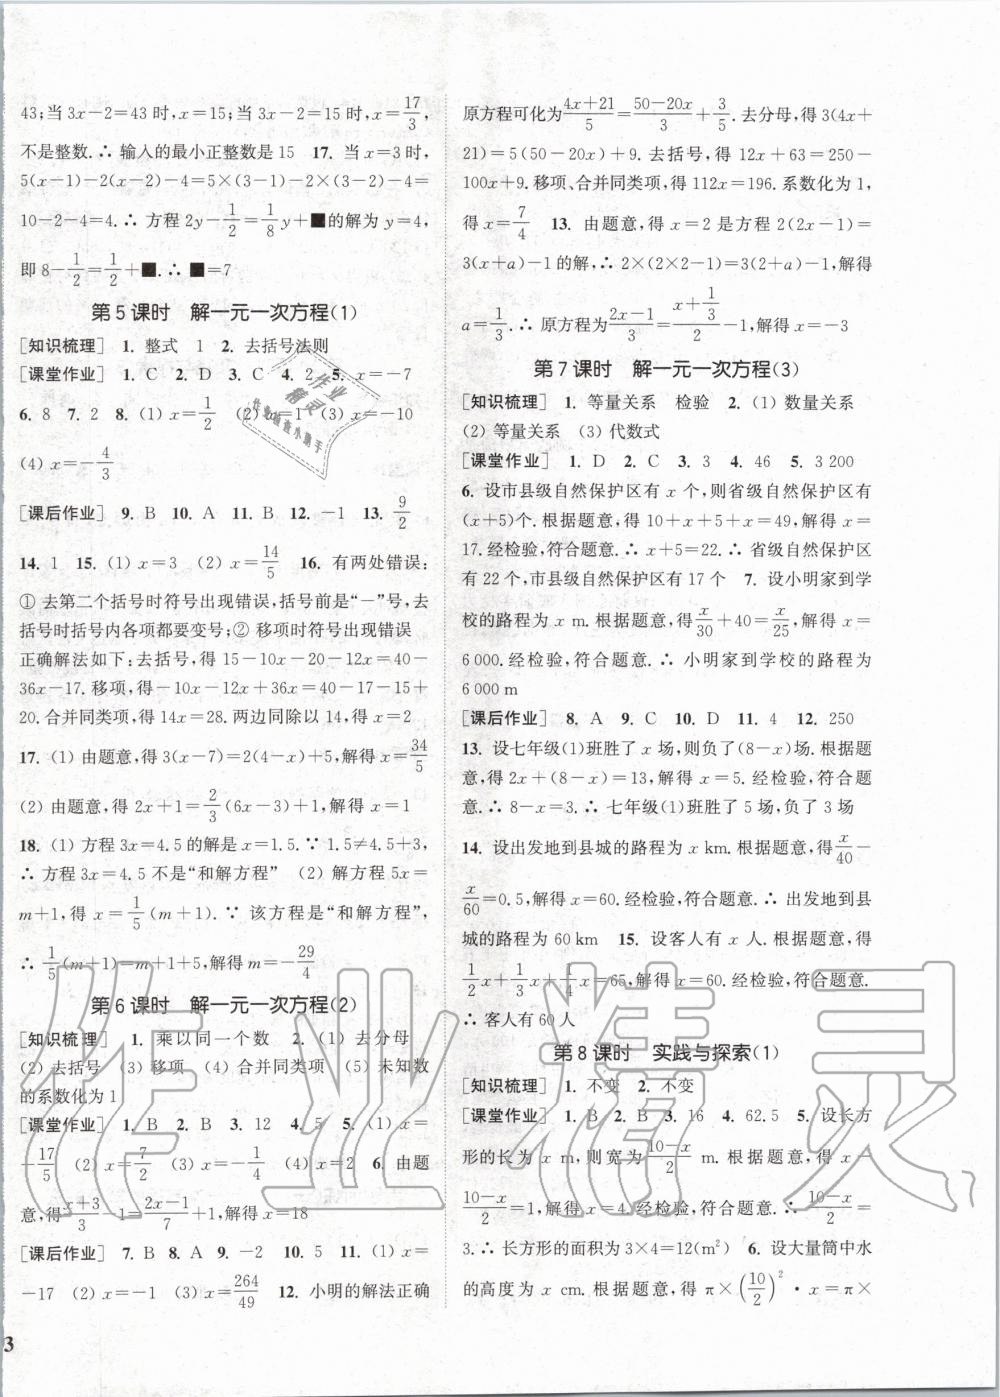 43;当 3x-2=43 时,x=15;当 3x-2=15 时,x=17/3,
不是整数.∴ 输入的最小正整数是 15 17. 当 x=3 时,
5(x-1)-2(x-2)-4=5×(3-1)-2×(3-2)-4=
10-2-4=4.∴ 方程 2y-1/2=1/8y+■的解为 y=4,
即 8-1/2=1/2+■.∴ ■=7
第 5 课时 解一元一次方程(1)
[知识梳理] 1. 整式 1 2. 去括号法则
[课堂作业] 1. C 2. D 3. C 4. 2 5. x=-7
6. 8 7. 2 8. (1) x=1/2 (2) x=1 (3) x=-10
(4) x=-4/3
[课后作业] 9. B 10. A 11. B 12. -1 13. 9/2
14. 1 15. (1) x=3 (2) x=14/5 16. 有两处错误:
① 去第二个括号时符号出现错误,括号前是“-”号,去
括号时括号内各项都要变号;② 移项时符号出现错误
正确解法如下:去括号,得 15-10-20x=40-
36x-17.移项,得-20x+36x=40-17-15+
20.合并同类项,得 14x=28.两边同除以 14,得 x=2
17. (1) 由题意,得 3(x-7)=2(4-x)+5,解得 x=34/5
(2) 由题意,得 2x+1=2/3(6x-3)+1,解得 x=1
18. (1) 方程 3x=4.5 的解是 x=1.5.∵ 1.5≠4.5+3,
∴ 方程 3x=4.5 不是“和解方程” (2) 解方程 5x=
m+1,得 x=1/5(m+1).∵ 该方程是“和解方程”,
∴ 1/5(m+1)=m+1+5,解得 m=-29/4
第 6 课时 解一元一次方程(2)
[知识梳理] 1. 乘以同一个数 2. (1) 去分母
(2) 去括号 (3) 移项 (4) 合并同类项 (5) 未知数
的系数化为 1
[课堂作业] 1. B 2. B 3. 12 4. 5 5. (1) x=
-17/5 (2) x=7/2 (3) x=-1/4 (4) x=2 6. 由题
意,得(x+3)/3-1=(2x-1)/7+1,解得 x=18
[课后作业] 7. B 8. A 9. -2 10. 5 11. (1) x=
-17 (2) x=-1 (3) x=264/49 12. 小明的解法正确
3
原方程可化为(4x+21)/5=(50-20x)/3+3/5.去分母,得 3(4x+
21)=5(50-20x)+9.去括号,得 12x+63=250-
100x+9.移项、合并同类项,得 112x=196.系数化为 1,
得 x=7/4 13. 由题意,得 x=2 是方程 2(2x-1)=
3(x+a)-1 的解,∴ 2×(2×2-1)=3(2+a)-1,解得
a=1/3.∴ 原方程为(2x-1)/3=(x+1/3)/2-1,解得 x=-3
第 7 课时 解一元一次方程(3)
[知识梳理] 1. 等量关系 检验 2. (1) 数量关系
(2) 等量关系 (3) 代数式
[课堂作业] 1. D 2. C 3. 3 4. 46 5. 3 200
6. 设市县级自然保护区有 x 个,则省级自然保护区有
(x+5)个.根据题意,得 10+x+5+x=49,解得 x=
17.经检验,符合题意.∴ x+5=22.∴ 省级自然保护区
有 22 个,市县级自然保护区有 17 个 7. 设小明家到学
校的路程为 x m.根据题意,得x/30+40=x/25,解得 x=
6 000.经检验,符合题意.∴ 小明家到学校的路程为
6 000 m
[课后作业] 8. A 9. C 10. D 11. 4 12. 250
13. 设七年级(1)班胜了 x 场,则负了(8-x)场.根据题
意,得 2x+(8-x)=13,解得 x=5.经检验,符合题
意.∴ 8-x=3.∴ 七年级(1)班胜了 5 场,负了 3 场
14. 设出发地到县城的路程为 x km.根据题意,得x/40-
x/60=0.5,解得 x=60.经检验,符合题意.∴ 出发地到县
城的路程为 60 km 15. 设客人有 x 人.根据题意,得
1/2x+1/3x+1/4x=65,解得 x=60.经检验,符合题意.
∴ 客人有 60 人
第 8 课时 实践与探索(1)
[知识梳理] 1. 不变 2. 不变
[课堂作业] 1. B 2. B 3. 16 4. 62.5 5. 设长方
形的长为 x m,则宽为(10-x)/2 m.根据题意,得 x-
(10-x)/2=1,解得 x=4.经检验,符合题意.∴ (10-x)/2=
3.∴ 长方形的面积为 3×4=12(m²) 6. 设大量筒中水
的高度为 x cm.根据题意,得 π×(10/2)²·x=π×
作业精灵
作业精灵
作业检查小助手